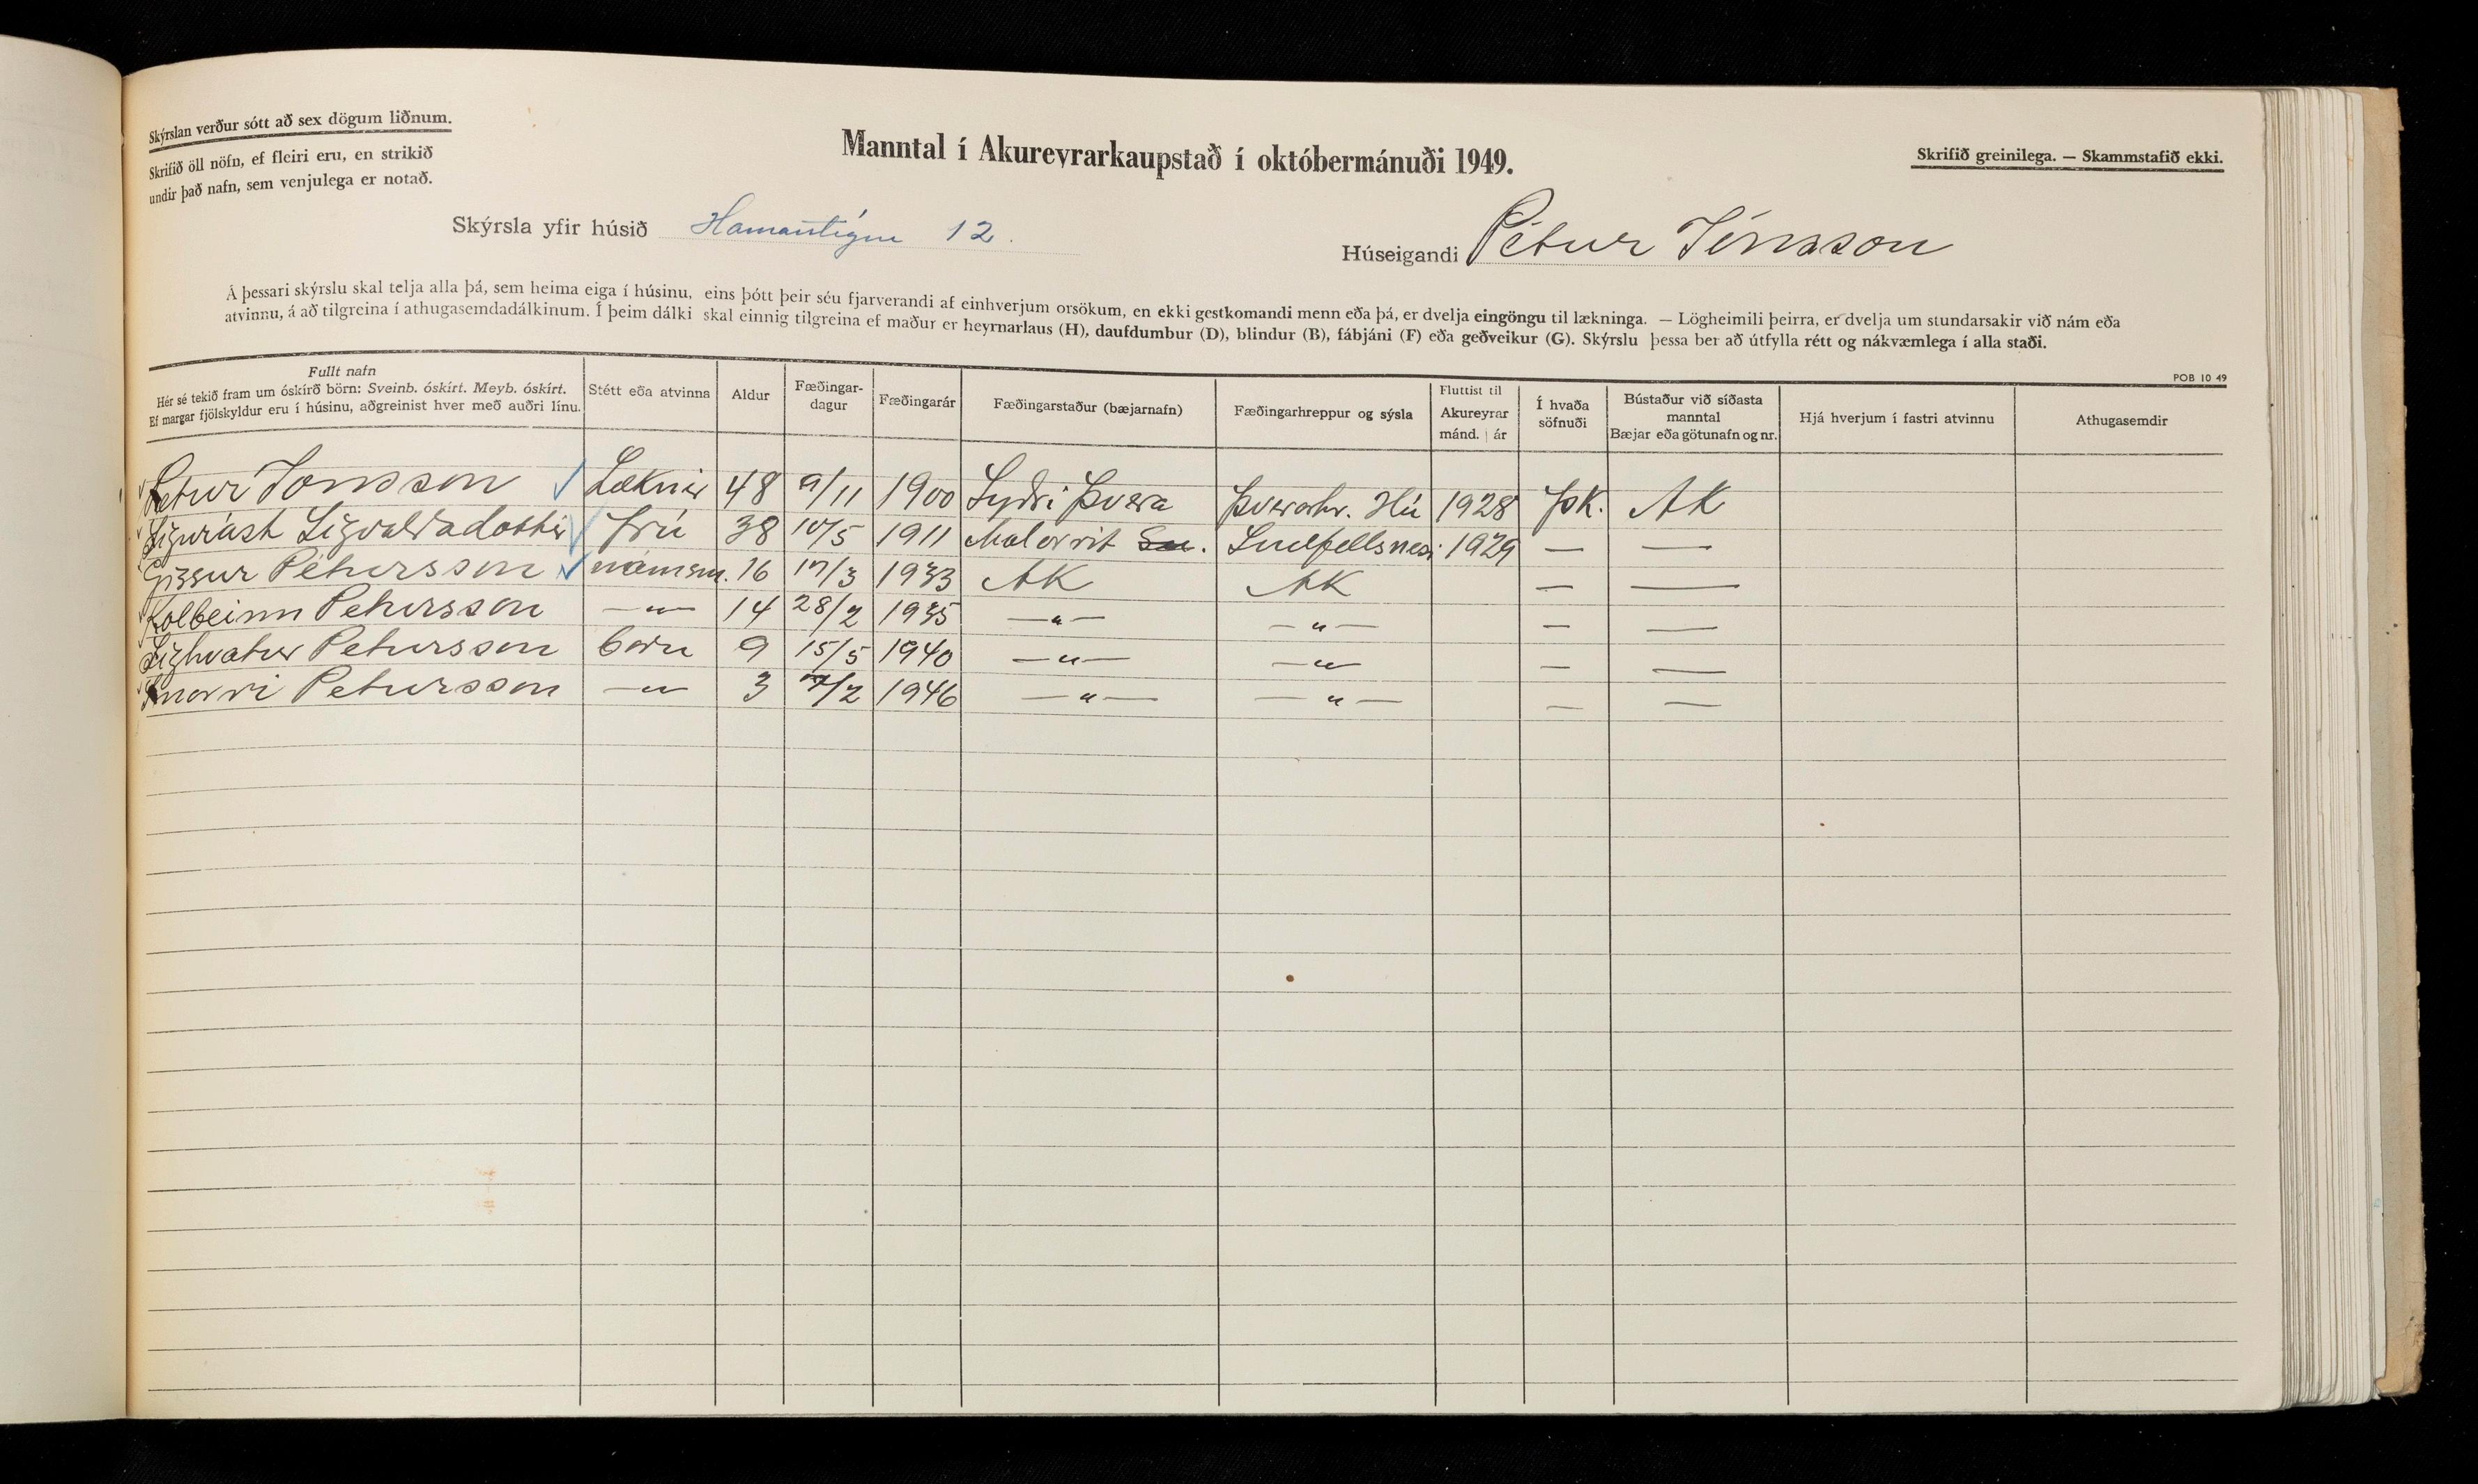 Skýrslan verður sótt að sex dögum liðnum.
Skrifið öll nöfn, ef fleiri eru, en strikið
undir það nafn, sem venjulega er notað.
Manntal í Akureyrarkaupstað í októbermánuði 1949.
Skrifið greinilega. — Skammstafið ekki.
Skýrsla yfir húsið Hamarstígur 12.
Húseigandi Pétur Jónsson
Á þessari skýrslu skal telja alla þá, sem heima eiga í húsinu, eins þótt þeir séu fjarverandi af einhverjum orsökum, en ekki gestkomandi menn eða þá, er dvelja eingöngu til lækninga. — Lögheimili þeirra, er dvelja um stundarsakir við nám eða
atvinnu, á að tilgreina í athugasemdadálkinum. Í þeim dálki skal einnig tilgreina ef maður er heyrnarlaus (H), daufdumbur (D), blindur (B), fábjáni (F) eða geðveikur (G). Skýrslu þessa ber að útfylla rétt og nákvæmlega í alla staði.
POB 10 49
Fullt nafn
Hér sé tekið fram um óskírð börn: Sveinb. óskírt. Meyb. óskírt.
Ef margar fjölskyldur eru í húsinu, aðgreinist hver með auðri línu.
Stétt eða atvinna
Aldur
Fæðingar-
dagur
Fæðingarár
Fæðingarstaður (bæjarnafn)
Fæðingarhreppur og sýsla
Fluttist til
Akureyrar
mánd. | ár
Í hvaða
söfnuði
Bústaður við síðasta
manntal
Bæjar eða götunafn og nr.
Hjá hverjum í fastri atvinnu
Athugasemdir
Petur Jonsson Læknir 48 9/11 1900 Sydri Þvera Þverarhr. Hú 1928 Þk. AK
Sigurást Sigvaldadottir frú 38 10/5 1911 Malarrit Snæfellsnesi 1929 — —
Gissur Petursson námsm. 16 17/3 1933 AK AK — —
Kolbeinn Petursson —"— 14 28/2 1935 —"— —"— — —
Sighvatur Petursson born 9 15/5 1940 —"— —"— — —
Snorri Petursson —"— 3 /2 1946 —"— —"— — —